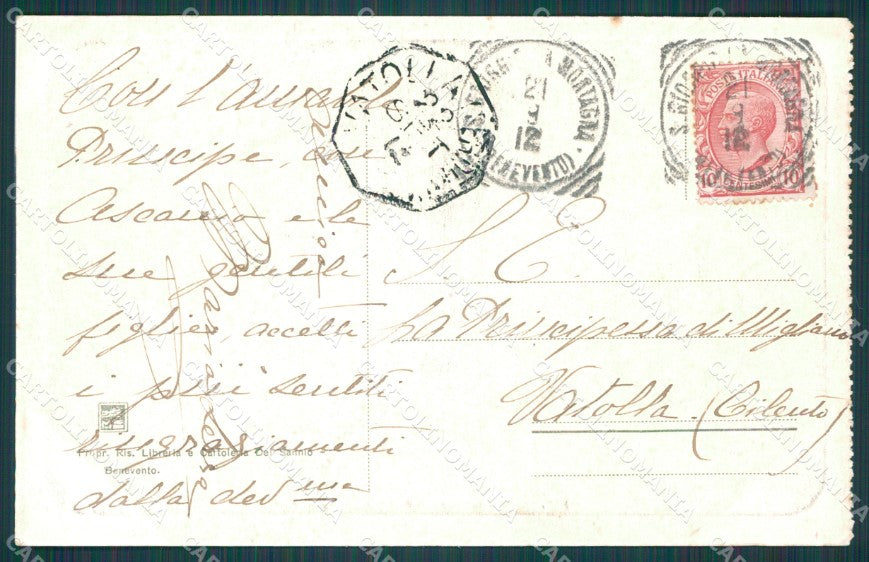 Con l'amabile
Principe, con
Ascanio e le
sue gentili
figlie, accetti
i più sentiti
ringraziamenti
dalla dev ma
S. E.
La Principessa di Migliano
Vatolla (Cilento)
VATOLLA
MONTAGNA
(BENEVENTO)
21
12
POSTE ITALIANE
10
10
21
12
Propr. Ris. Libreria e Cartoleria Del Sannio
Benevento.
CARTOLINOMANIA